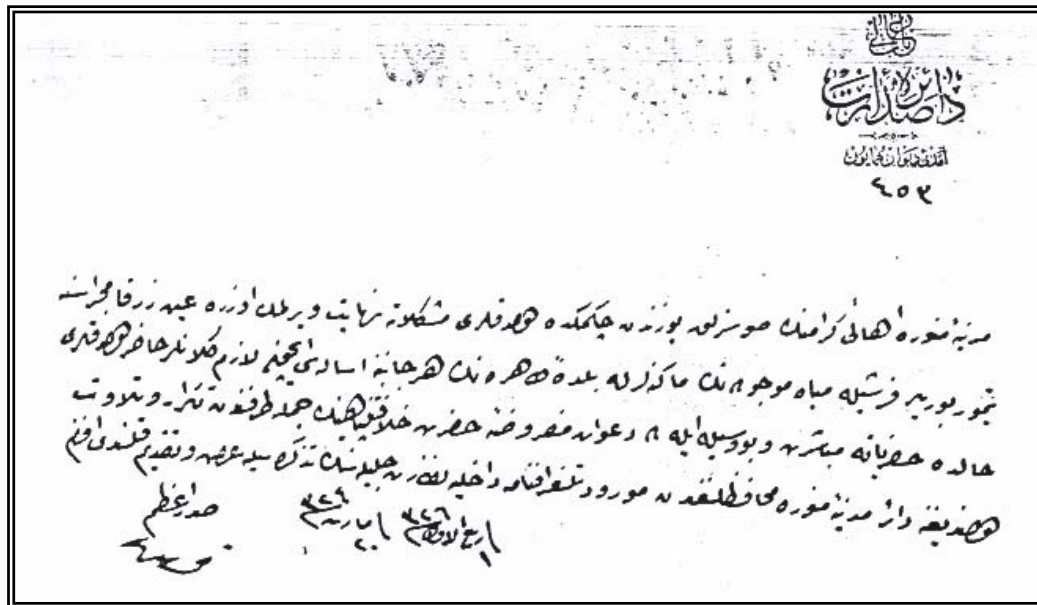 باب عالی
دائرۀ صدارت
آمدی دیوان همایون
٤٥٣
مدینۀ منوره اهالئ کرامنك صوسزلق یوزندن چكمكده اولدقلری مشكلاته نهایت ویرلمك اوزره عین زرقا مجراسنه
تیمور بوریلر فرشیله میاه موجوده نك ماكنه لرله بلدۀ طاهره نك هر جانبنه اساله سی ایچون لازم كلانلر حاضر اولدقلری
حالده حفریاته مباشرت و بو وسیله ایله ده دعوات مفروضۀ حضرت خلافتپناهینك جمله طرفندن تكرار و تلاوت
اولندیغنه دائر مدینۀ منوره محافظلغندن مورود تلغرافنامه داخلیه نظارت جلیله سنك تذكره سیله عرض و تقدیم قلندی افندم
فی ١ ربیع الاول ٣٢٦ فی ٢٠ مارت ٣٢٤
صدر اعظم